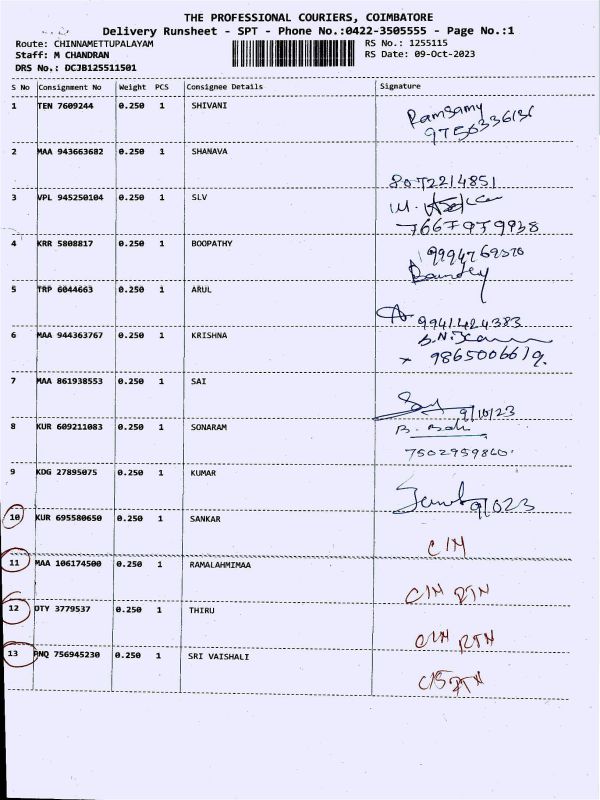 THE PROFESSIONAL COURIERS, COIMBATORE
Delivery Runsheet - SPT - Phone No.:0422-3505555 - Page No.:1
Route: CHINNAMETTUPALAYAM
RS No.: 1255115
Staff: M CHANDRAN
RS Date: 09-Oct-2023
DRS No.: DCJB125511501
S No Consignment No Weight PCS Consignee Details Signature
1 TEN 7609244 0.250 1 SHIVANI
Ramsamy
2 MAA 943663682 0.250 1 SHANAVA
8072214851
3 VPL 945250104 0.250 1 SLV
7667979938
4 KRR 5808817 0.250 1 BOOPATHY
5 TRP 6044663 0.250 1 ARUL
9941424383
6 MAA 944363767 0.250 1 KRISHNA
9865006619.
7 MAA 861938553 0.250 1 SAI
9/10/23
8 KUR 609211083 0.250 1 SONARAM
7502959860.
9 KDG 27895075 0.250 1 KUMAR
9/023
10 KUR 695580650 0.250 1 SANKAR
C/M
11 MAA 106174500 0.250 1 RAMALAHMIMAA
RTN
12 OTY 3779537 0.250 1 THIRU
RTN
13 PNQ 756945230 0.250 1 SRI VAISHALI
RTN